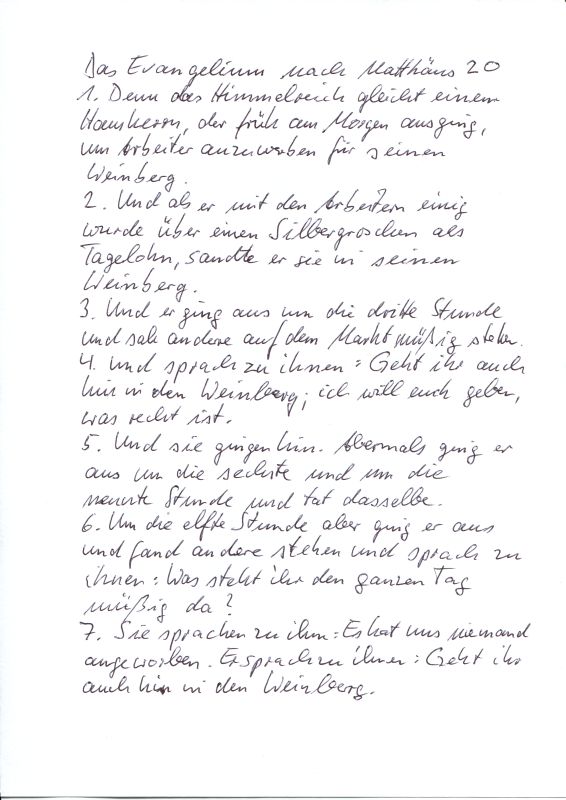 Das Evangelium nach Matthäus 20
1. Denn das Himmelreich gleicht einem
Hausherrn, der früh am Morgen ausging,
um Arbeiter anzuwerben für seinen
Weinberg.
2. Und als er mit den Arbeitern einig
wurde über einen Silbergroschen als
Tagelohn, sandte er sie in seinen
Weinberg.
3. Und er ging aus um die dritte Stunde
und sah andere auf dem Markt müßig stehen.
4. und sprach zu ihnen: Geht ihr auch
hin in den Weinberg; ich will euch geben,
was recht ist.
5. Und sie gingen hin. Abermals ging er
aus um die sechste und um die
neunte Stunde und tat dasselbe.
6. Um die elfte Stunde aber ging er aus
und fand andere stehen und sprach zu
ihnen: Was steht ihr den ganzen Tag
müßig da?
7. Sie sprachen zu ihm: Es hat uns niemand
angeworben. Er sprach zu ihnen: Geht ihr
auch hin in den Weinberg.